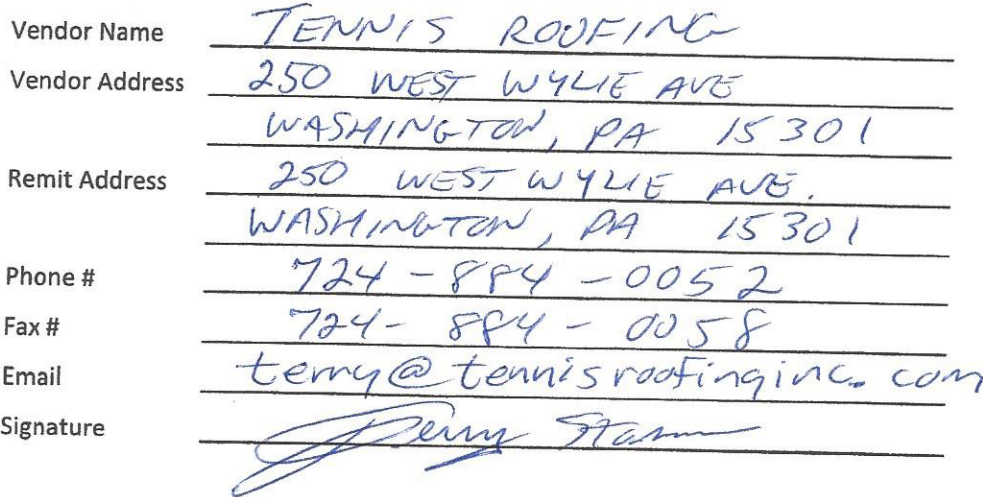 Vendor Name TENNIS ROOFING
Vendor Address 250 WEST WYLIE AVE
WASHINGTON, PA 15301
Remit Address 250 WEST WYLIE AVE.
WASHINGTON, PA 15301
Phone # 724-884-0052
Fax # 724-884-0058
Email terry@tennisroofinginc.com
Signature Terry